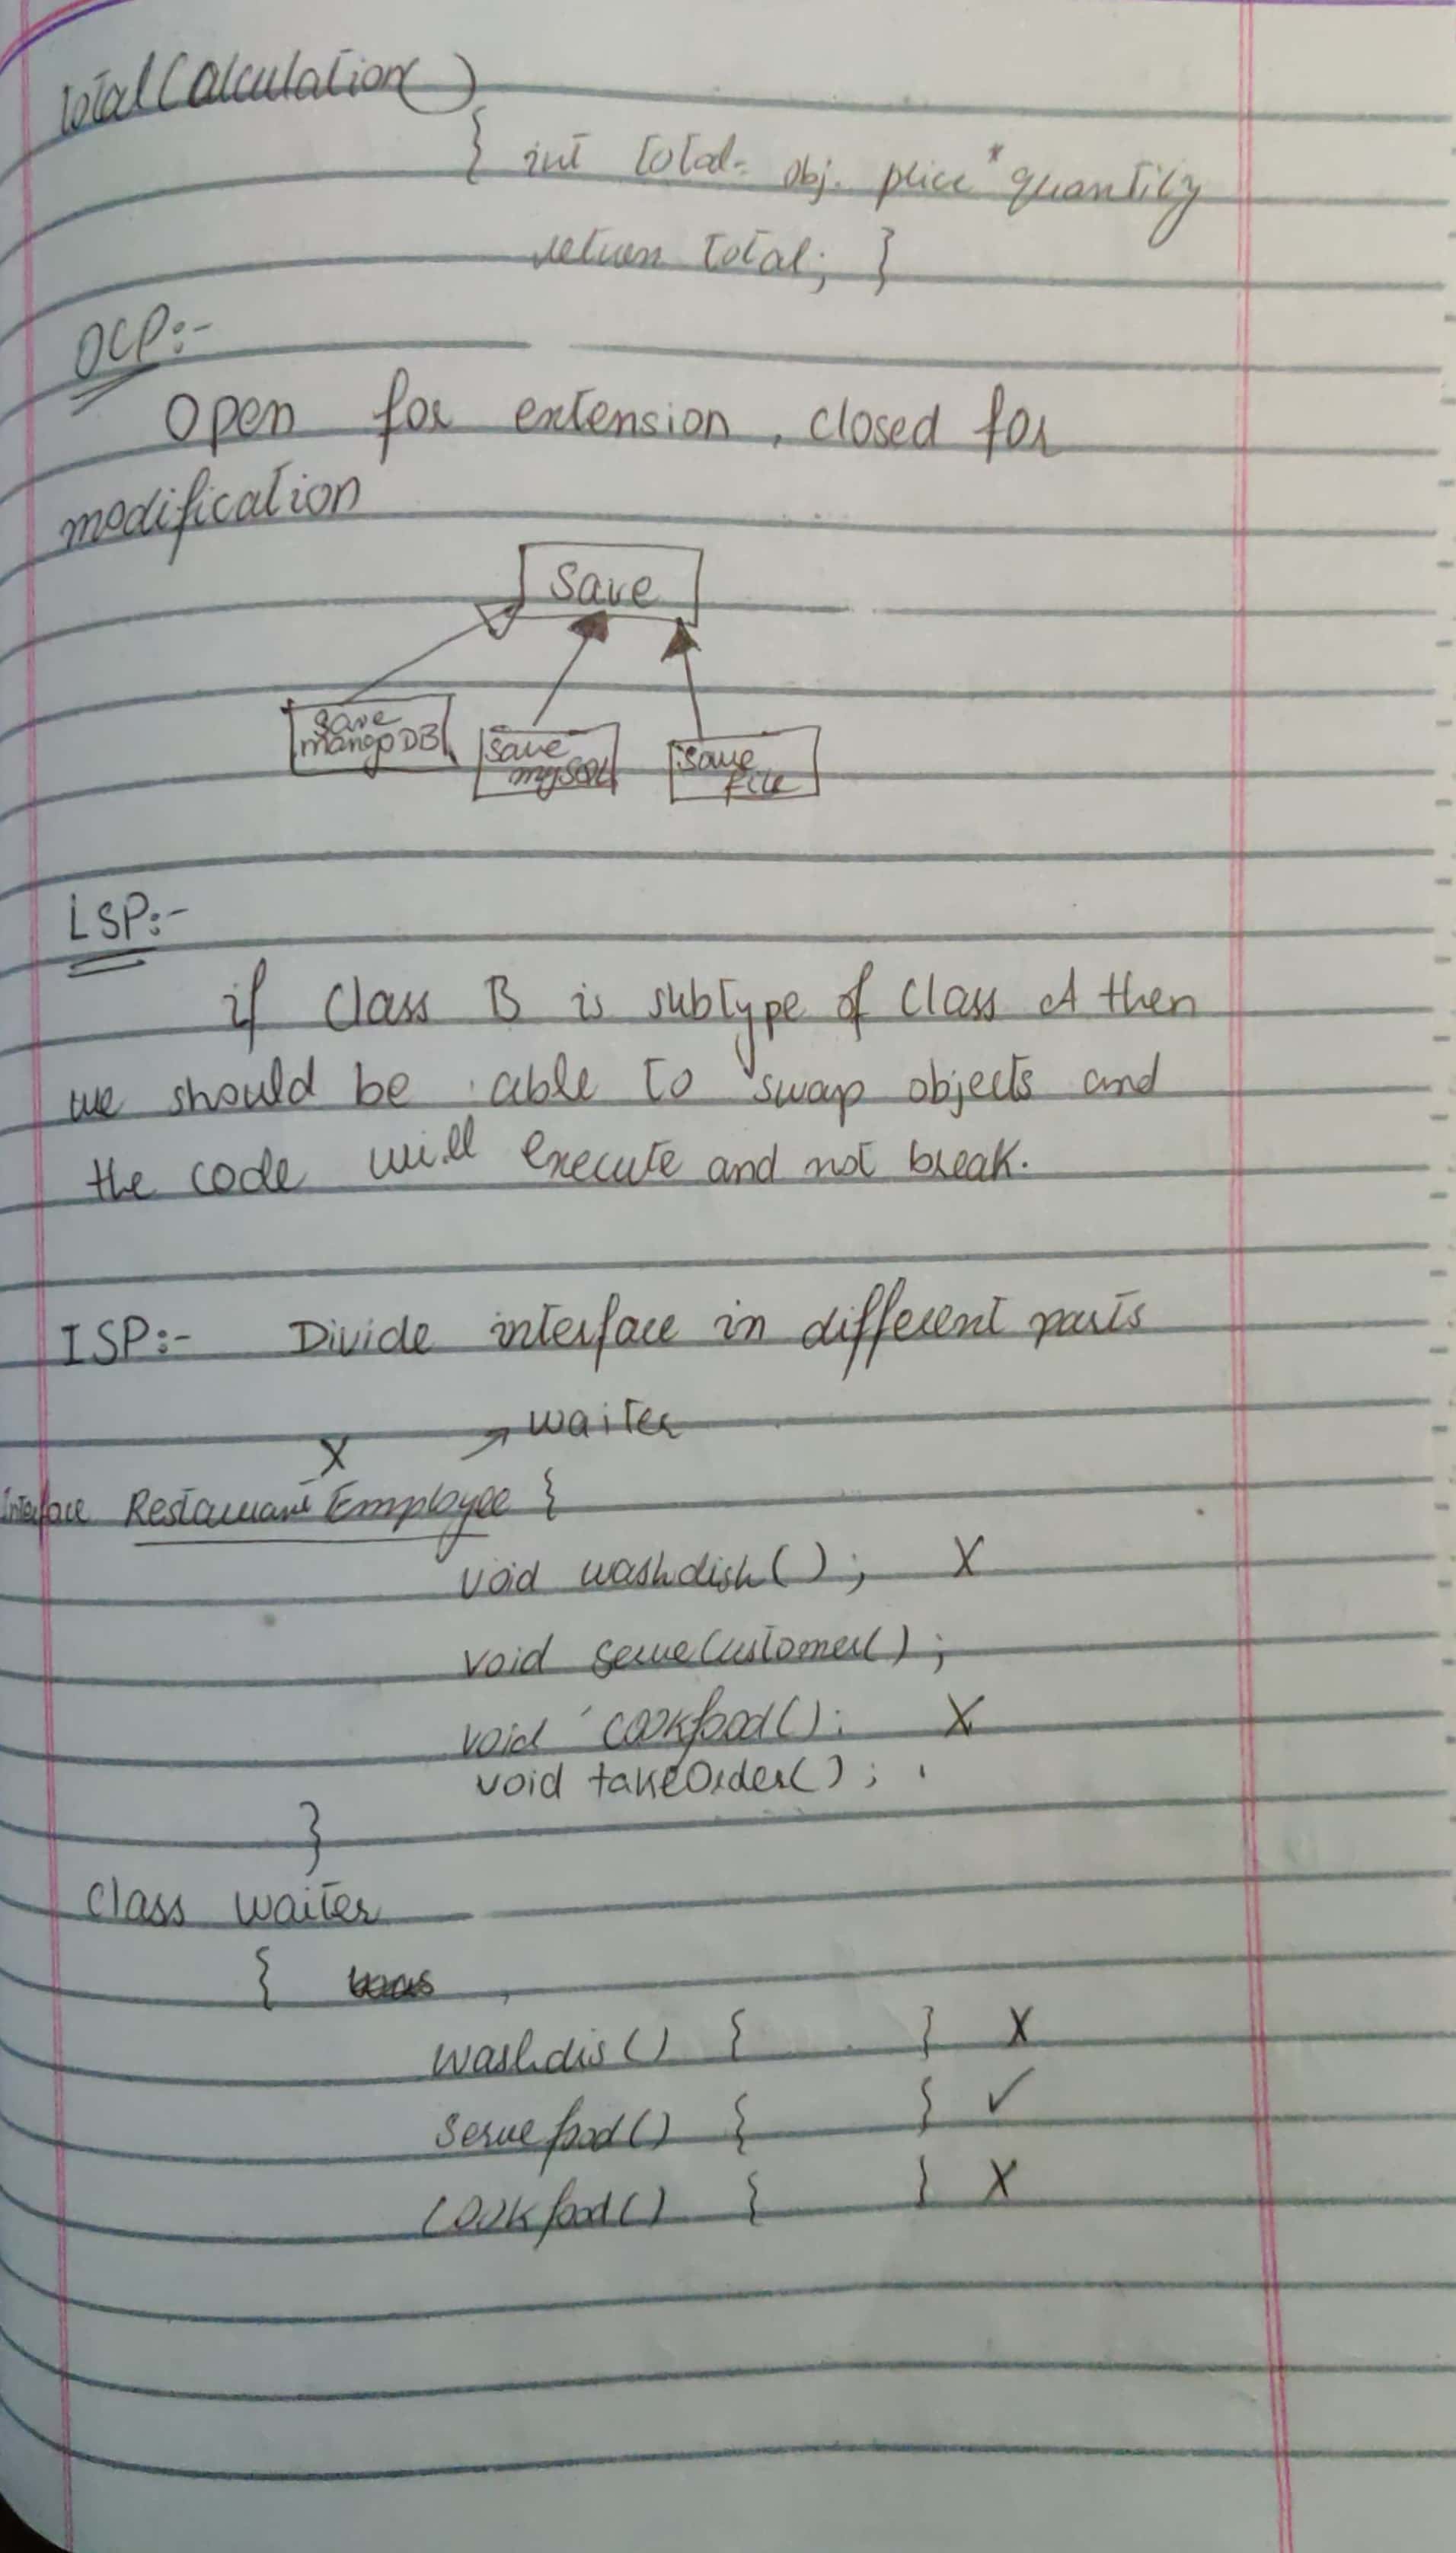 totalCalculation()
{ int total = obj. price * quantity
return total; }
OCP:-
Open for extension, closed for
modification
Save
save
mangoDB
Save
mySQL
Save
File
LSP:-
if Class B is subtype of Class A then
we should be able to swap objects and
the code will execute and not break.
ISP:- Divide interface in different parts
X → waiter
Interface Restaurant Employee {
void washdish(); X
void serveCustomer();
void cookfood(); X
void takeOrder();
}
Class waiter
{
washdis() { } X
serve food() { } ✓
Cookfood() { } X